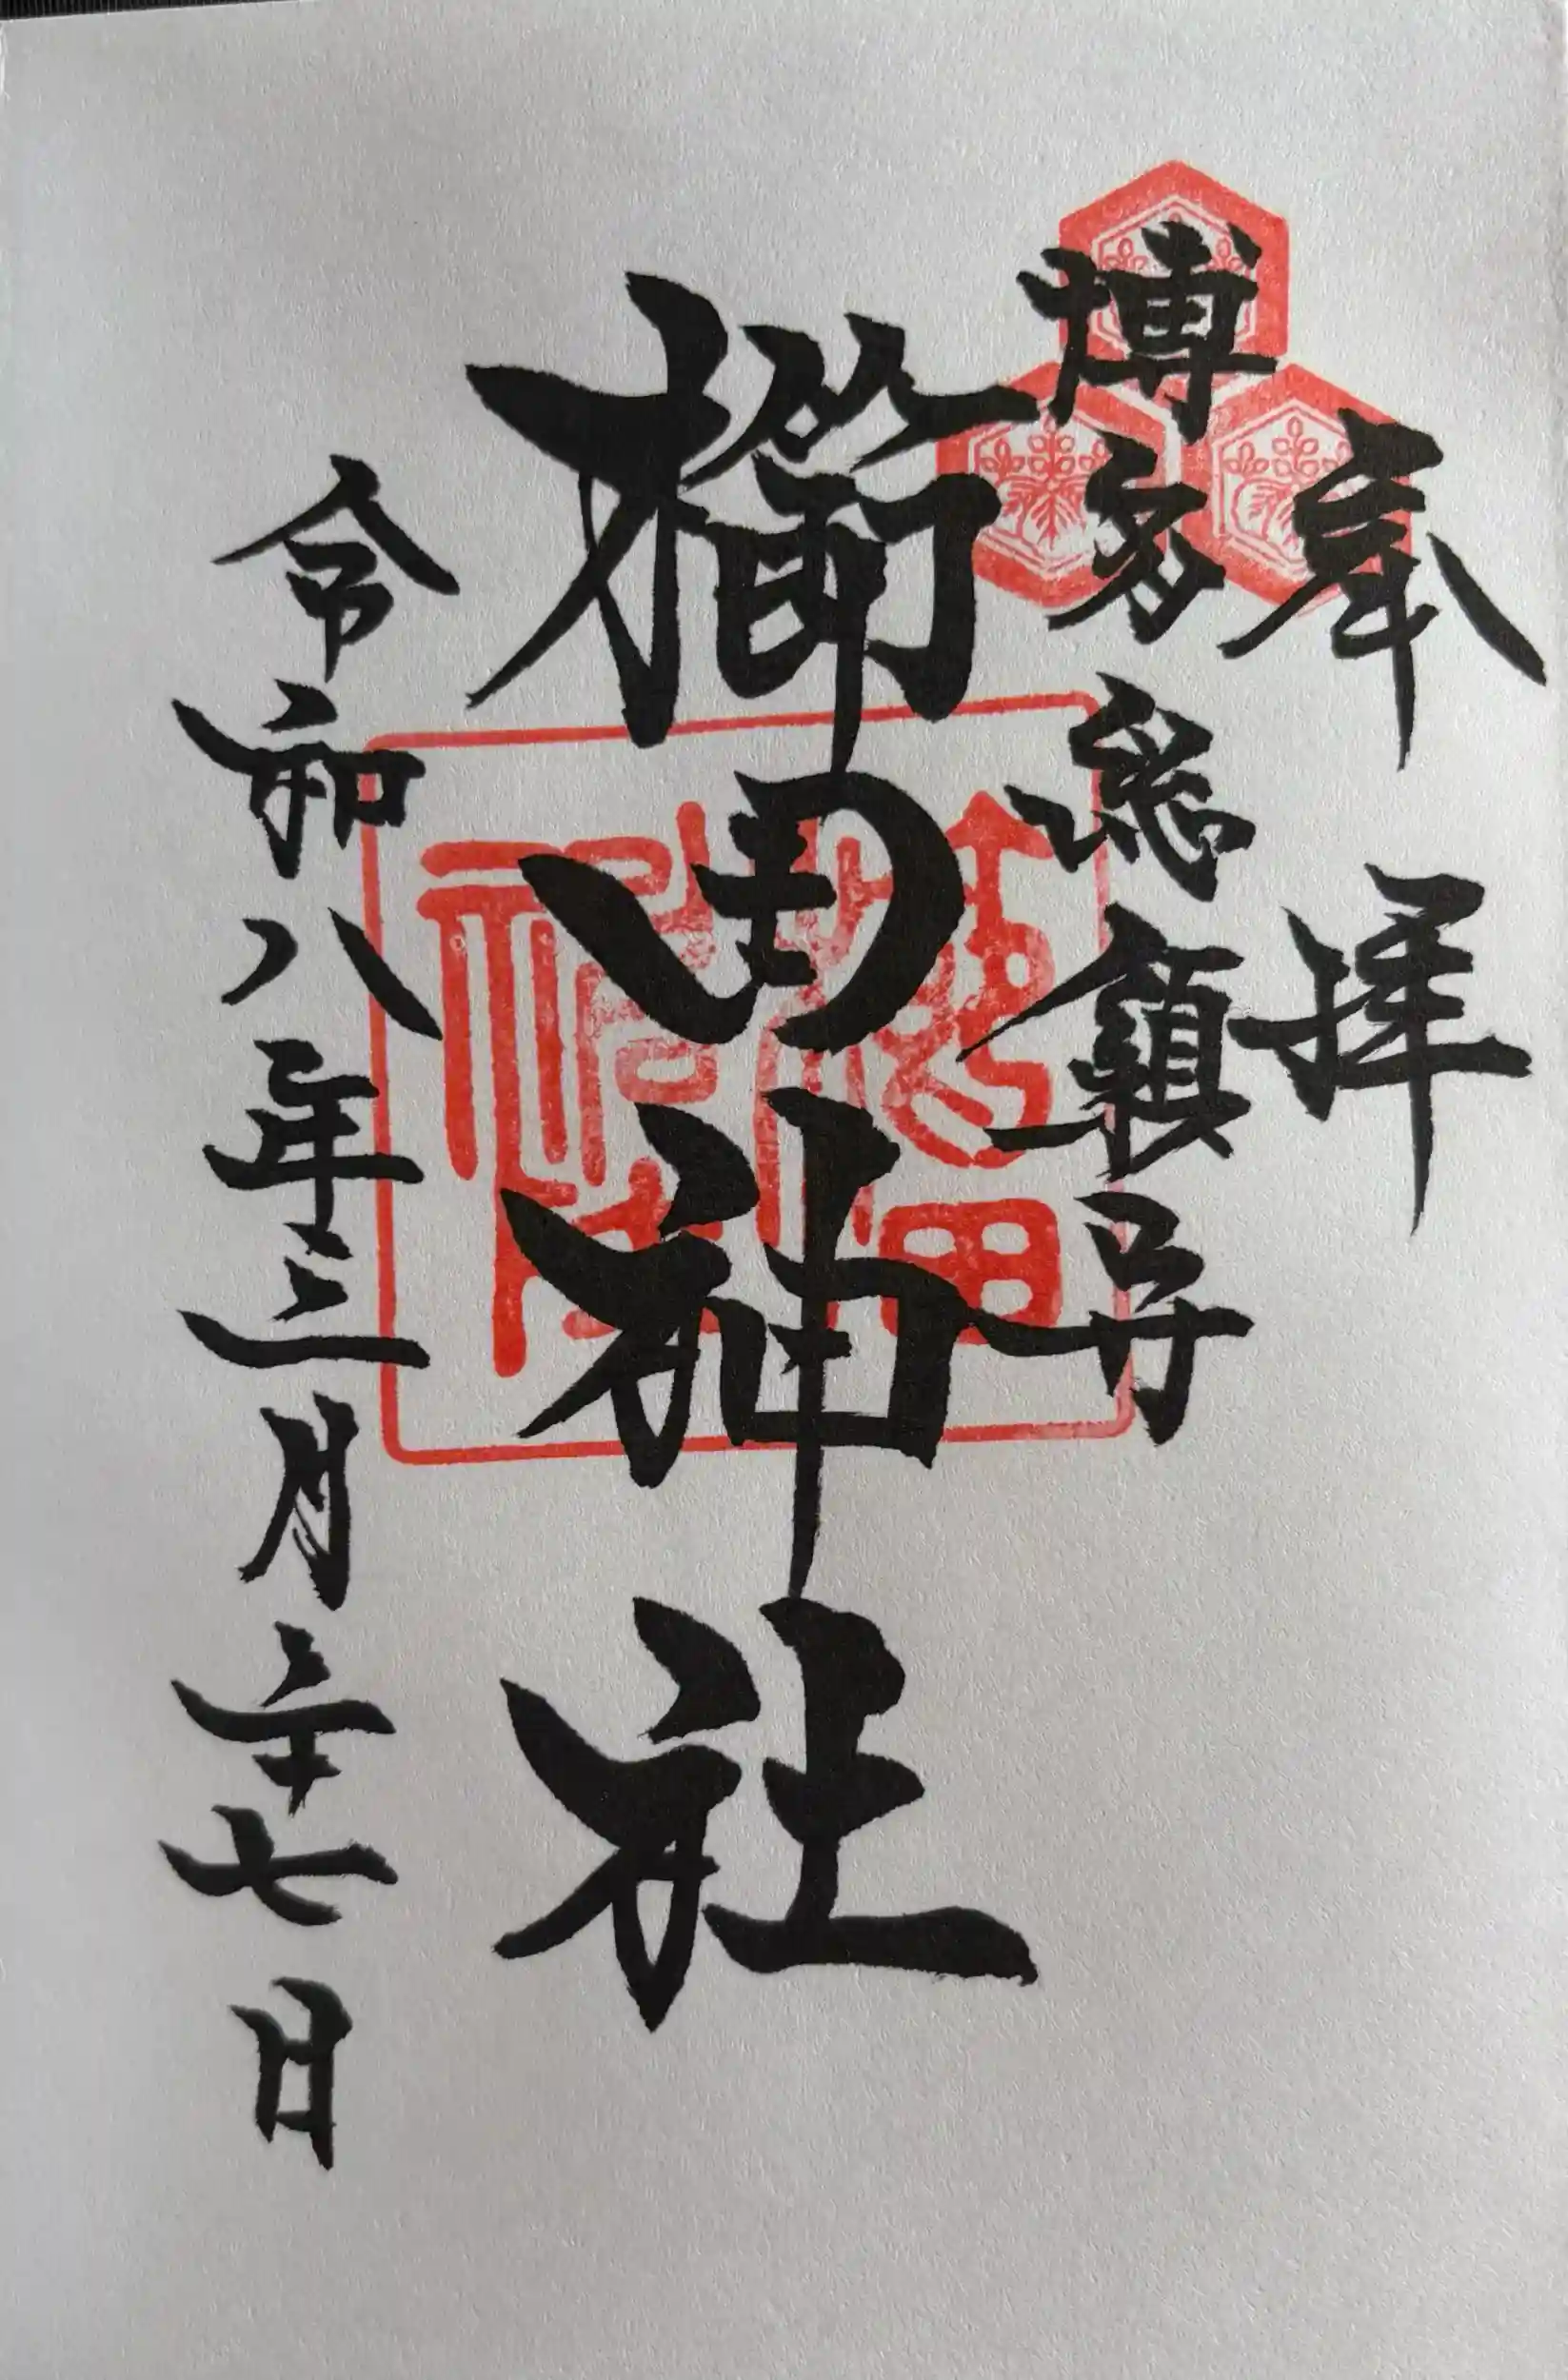 奉拝
博多総鎮守
櫛田神社
令和八年三月二十七日
櫛田神社